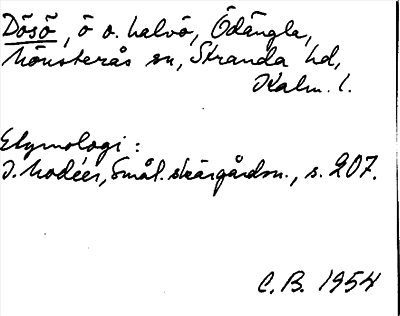 Dösö, ö o. halvö, Ödängla,
Mönsterås sn, Stranda hd,
Kalm. l.
Etymologi:
I. Modéer, Smål. skärgårdsn., s. 207.
C.B. 1954